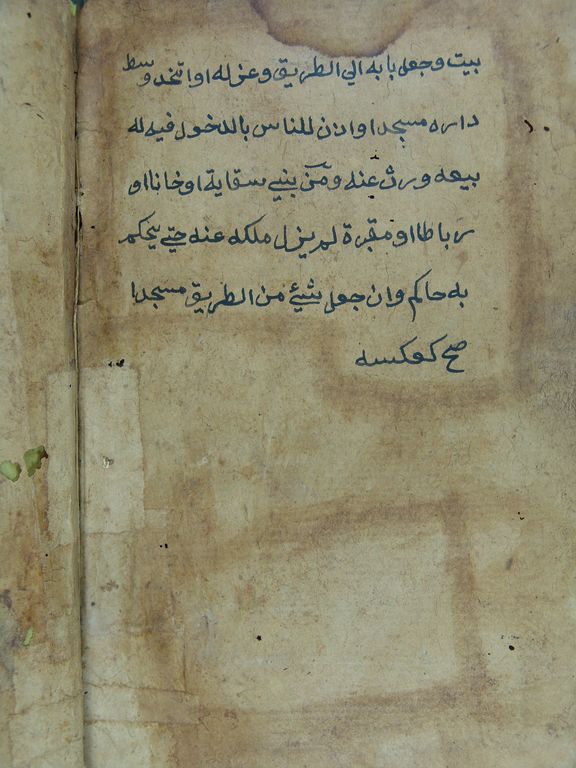 بيت وجعل بابه الي الطريق وعزله او اتخد وسط
داره مسجدا او ادن للناس بالدخول فيه له
بيعه وورث عنه ومن بني سقاية او خانا او
رباطا او مقبرة لم يزل ملكه عنه حتي يحكم
به حاكم وان جعل شيئ من الطريق مسجدا
صح كعكسه